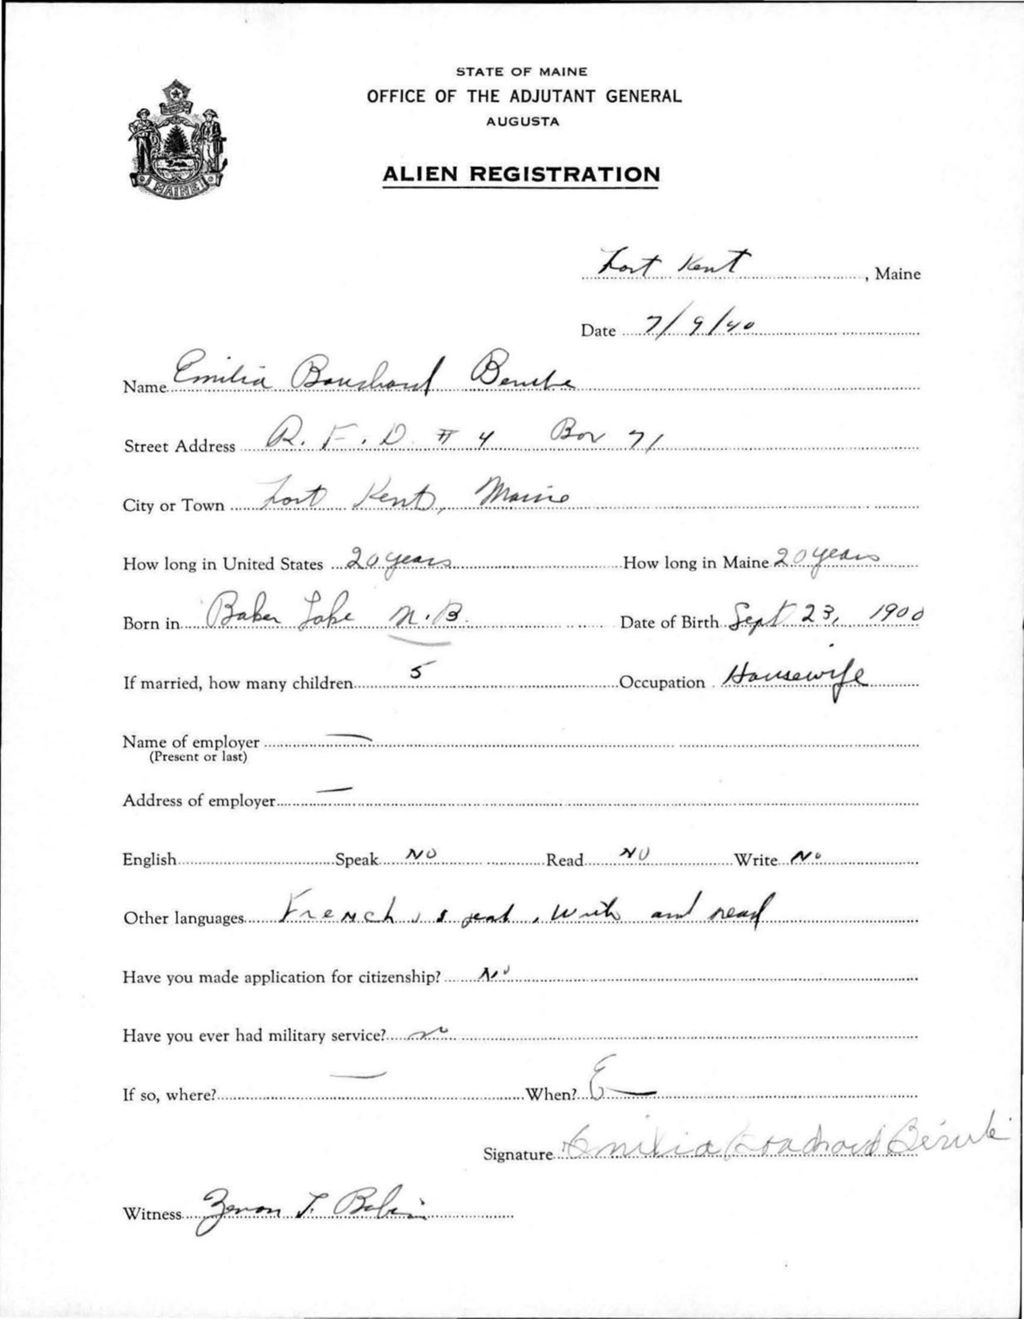 STATE OF MAINE
OFFICE OF THE ADJUTANT GENERAL
AUGUSTA
ALIEN REGISTRATION
MAINE
Fort Kent, Maine
Date 7/9/40
Name Emilia Bouchard Berube
Street Address R. F. D. # 4 Box 71
City or Town Fort Kent, Maine
How long in United States 20 years How long in Maine 20 years
Born in Baker Lake N.B. Date of Birth Sept 23, 1900
If married, how many children 5 Occupation Housewife
Name of employer —
(Present or last)
Address of employer —
English Speak No Read No Write No
Other languages French, speak, write and read
Have you made application for citizenship? No
Have you ever had military service? no
If so, where? — When? —
Signature Emilia Bouchard Bérubé
Witness Zenon T.